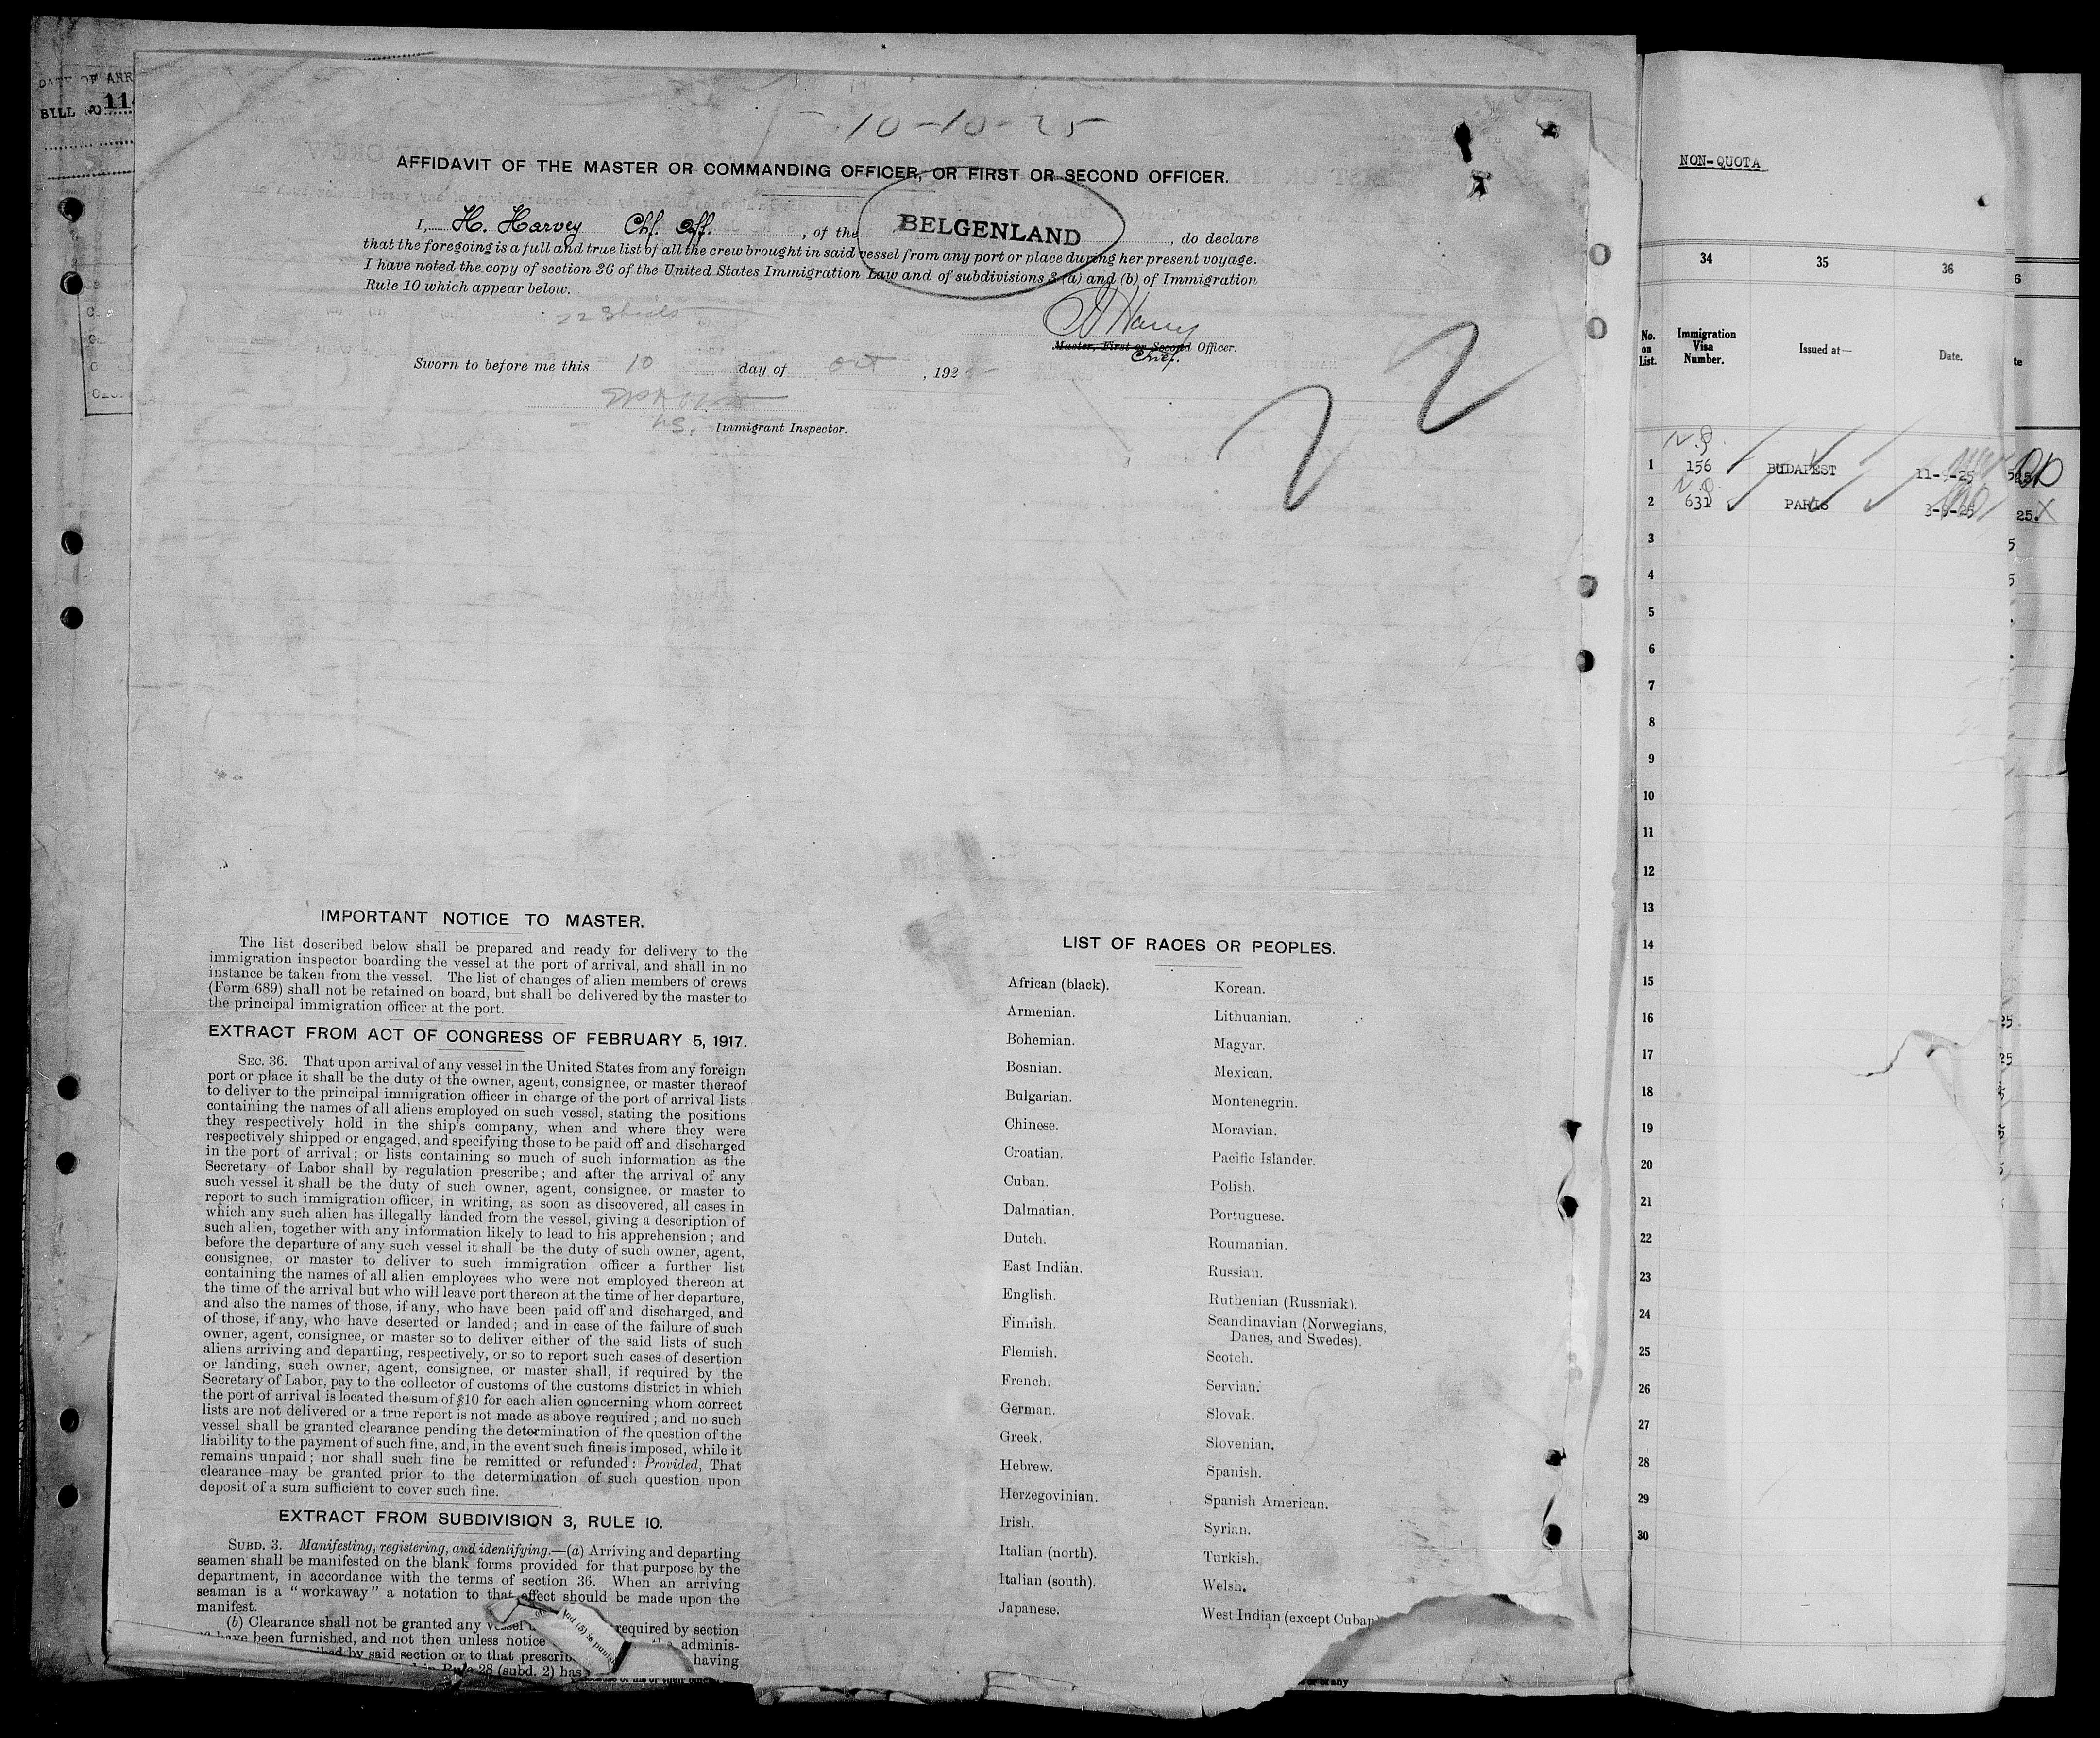 DATE OF ARR
BILL NO 114
10-10-25
AFFIDAVIT OF THE MASTER OR COMMANDING OFFICER, OR FIRST OR SECOND OFFICER.
I, H. Harvey Chf. Off. , of the BELGENLAND , do declare
that the foregoing is a full and true list of all the crew brought in said vessel from any port or place during her present voyage.
I have noted the copy of section 36 of the United States Immigration Law and of subdivisions 3 (a) and (b) of Immigration
Rule 10 which appear below.
22 Sheets
H Harvey
Master, First or Second Officer.
Chief.
Sworn to before me this 10 day of Oct , 1925
Immigrant Inspector.
22
IMPORTANT NOTICE TO MASTER.
The list described below shall be prepared and ready for delivery to the
immigration inspector boarding the vessel at the port of arrival, and shall in no
instance be taken from the vessel. The list of changes of alien members of crews
(Form 689) shall not be retained on board, but shall be delivered by the master to
the principal immigration officer at the port.
EXTRACT FROM ACT OF CONGRESS OF FEBRUARY 5, 1917.
SEC. 36. That upon arrival of any vessel in the United States from any foreign
port or place it shall be the duty of the owner, agent, consignee, or master thereof
to deliver to the principal immigration officer in charge of the port of arrival lists
containing the names of all aliens employed on such vessel, stating the positions
they respectively hold in the ship's company, when and where they were
respectively shipped or engaged, and specifying those to be paid off and discharged
in the port of arrival; or lists containing so much of such information as the
Secretary of Labor shall by regulation prescribe; and after the arrival of any
such vessel it shall be the duty of such owner, agent, consignee, or master to
report to such immigration officer, in writing, as soon as discovered, all cases in
which any such alien has illegally landed from the vessel, giving a description of
such alien, together with any information likely to lead to his apprehension; and
before the departure of any such vessel it shall be the duty of such owner, agent,
consignee, or master to deliver to such immigration officer a further list
containing the names of all alien employees who were not employed thereon at
the time of the arrival but who will leave port thereon at the time of her departure,
and also the names of those, if any, who have been paid off and discharged, and
of those, if any, who have deserted or landed; and in case of the failure of such
owner, agent, consignee, or master so to deliver either of the said lists of such
aliens arriving and departing, respectively, or so to report such cases of desertion
or landing, such owner, agent, consignee, or master shall, if required by the
Secretary of Labor, pay to the collector of customs of the customs district in which
the port of arrival is located the sum of $10 for each alien concerning whom correct
lists are not delivered or a true report is not made as above required; and no such
vessel shall be granted clearance pending the determination of the question of the
liability to the payment of such fine, and, in the event such fine is imposed, while it
remains unpaid; nor shall such fine be remitted or refunded: Provided, That
clearance may be granted prior to the determination of such question upon
deposit of a sum sufficient to cover such fine.
EXTRACT FROM SUBDIVISION 3, RULE 10.
SUBD. 3. Manifesting, registering, and identifying.—(a) Arriving and departing
seamen shall be manifested on the blank forms provided for that purpose by the
department, in accordance with the terms of section 36. When an arriving
seaman is a "workaway" a notation to that effect should be made upon the
manifest.
(b) Clearance shall not be granted any vessel required by section
have been furnished, and not then unless notice adminis-
by said section or to that prescrib having
Rule 28 (subd. 2) has
LIST OF RACES OR PEOPLES.
African (black). Korean.
Armenian. Lithuanian.
Bohemian. Magyar.
Bosnian. Mexican.
Bulgarian. Montenegrin.
Chinese. Moravian.
Croatian. Pacific Islander.
Cuban. Polish.
Dalmatian. Portuguese.
Dutch. Roumanian.
East Indian. Russian.
English. Ruthenian (Russniak).
Finnish. Scandinavian (Norwegians,
Danes, and Swedes).
Flemish. Scotch.
French. Servian.
German. Slovak.
Greek. Slovenian.
Hebrew. Spanish.
Herzegovinian. Spanish American.
Irish. Syrian.
Italian (north). Turkish.
Italian (south). Welsh.
Japanese. West Indian (except Cuban
NON-QUOTA
34 35 36
No. on List. Immigration Visa Number. Issued at— Date.
1 156 BUDAPEST 11-9-25
2 631 PARIS 3-9-25
3
4
5
6
7
8
9
10
11
12
13
14
15
16
17
18
19
20
21
22
23
24
25
26
27
28
29
30